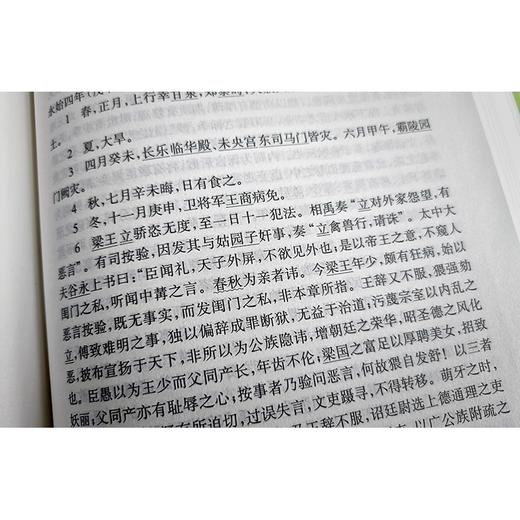 永始四年(戊
1 春,正月,上行幸甘泉,郊泰畤,
土。
2 夏,大旱。
3 四月癸未,长乐临华殿、未央宫东司马门皆灾。六月甲午,霸陵园
门阙灾。
4 秋,七月辛未晦,日有食之。
5 冬,十一月庚申,卫将军王商病免。
6 梁王立骄恣无度,至一日十一犯法。相禹奏“立对外家怨望,有
恶言”。有司按验,因发其与姑园子奸事,奏“立禽兽行,请诛”。太中大
夫谷永上书曰:“臣闻礼,天子外屏,不欲见外也;是以帝王之意,不窥人
闺门之私,听闻中冓之言。春秋为亲者讳。今梁王年少,颇有狂病,始以
恶言按验,既无事实,而发闺门之私,非本章所指。王辞又不服,猥强劾
立,傅致难明之事,独以偏辞成罪断狱,无益于治道;污蔑宗室以内乱之
恶,披布宣扬于天下,非所以为公族隐讳,增朝廷之荣华,昭圣德之风化
也。臣愚以为王少而父同产长,年齿不伦;梁国之富足以厚聘美女,招致
妖丽;父同产亦有耻辱之心;按事者乃验问恶言,何故猥自发舒!以三者
仍有所迫切,过误失言,文吏蹑寻,不得转移。萌牙之时,
王辞不服,诏廷尉选上德通理之吏
以广公族附疏之